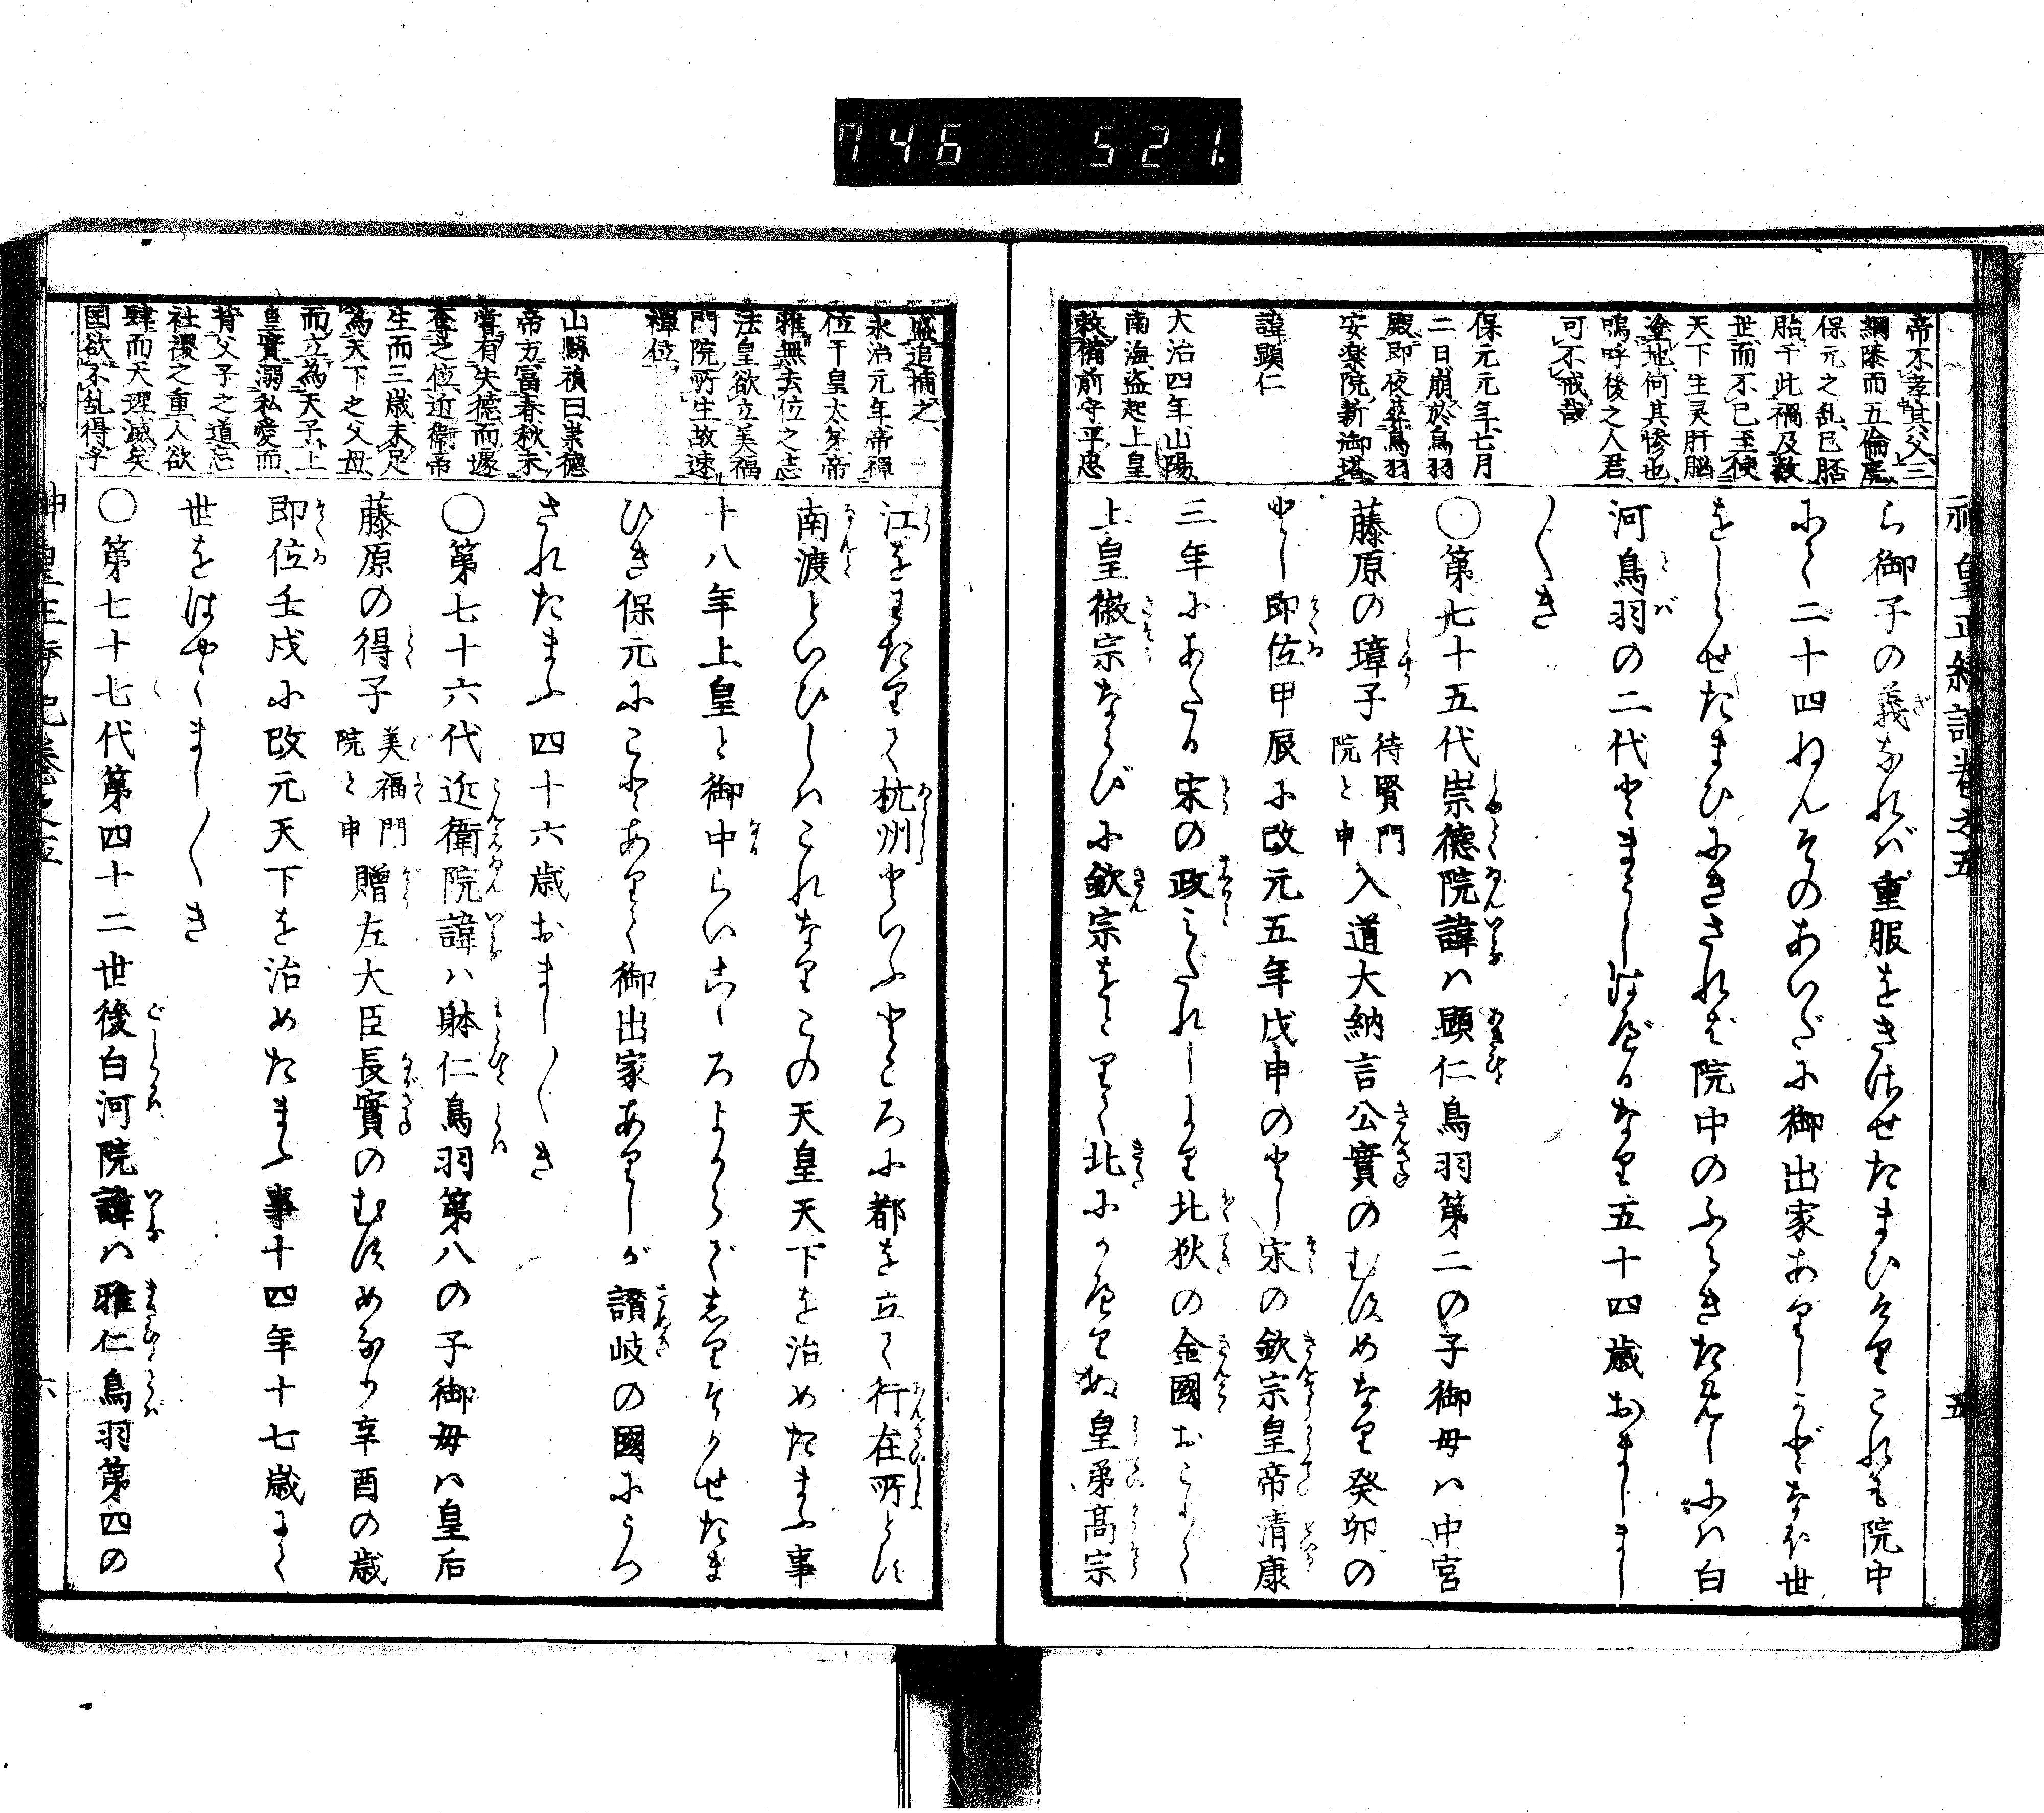 746 521.
神皇正統記巻之五
五
帝不孝其父三
綱隳而五倫廃
保元之乱已胚
胎于此禍及数
世而不已至使
天下生灵肝脳
塗地何其惨也
嗚呼後之人君
可不戒哉
保元元年七月
二日崩於鳥羽
殿即夜葬鳥羽
安楽院新御塔
諱顕仁
大治四年山陽
南海盗起上皇
敕備前守平忠
ら御子の義なれば重服をきさせたまひけりこれも院中
にて二十四ねんそのあいだに御出家ありしかどなほ世
をしらせたまひにきされば院中のふるきためしには白
河鳥羽の二代をまうしはべるなり五十四歳おましまし
〳〵き
〇第七十五代崇徳院諱ハ顕仁鳥羽第二の子御母ハ中宮
藤原の璋子 待賢門院と申 入道大納言公實のむすめなり癸卯の
とし即位甲辰に改元五年戊申のとし宋の欽宗皇帝清康
三年にあたる宋の政みだれしより北狄の金國おこりて
上皇徽宗ならびに欽宗をとりて北にかへりぬ皇弟高宗
盛追捕之
永治元年帝禪
位于皇太弟帝
雅無去位之志
法皇欲立美福
門院所生故速
禪位
山縣禎曰崇徳
帝方富春秋未
嘗有失徳而遽
奪之位近衛帝
生而三歳未足
為天下之父母
而立為天子上
皇實溺私愛而
背父子之道忘
社稷之重人欲
肆而天理滅矣
国欲不乱得乎
江をわたりて杭州といふところに都を立て行在所とす
南渡といひしはこれなりこの天皇天下を治めたまふ事
十八年上皇と御中らいこゝろよからで志りぞかせたま
ひき保元にことありて御出家ありしが讃岐の國にうつ
されたまふ四十六歳おまし〳〵き
〇第七十六代近衛院諱ハ躰仁鳥羽第八の子御母ハ皇后
藤原の得子 美福門院と申 贈左大臣長實のむすめなり辛酉の歳
即位壬戌に改元天下を治めたまふ事十四年十七歳にて
世をはやくまし〳〵き
〇第七十七代第四十二世後白河院諱ハ雅仁鳥羽第四の
神皇正統記巻之五
六